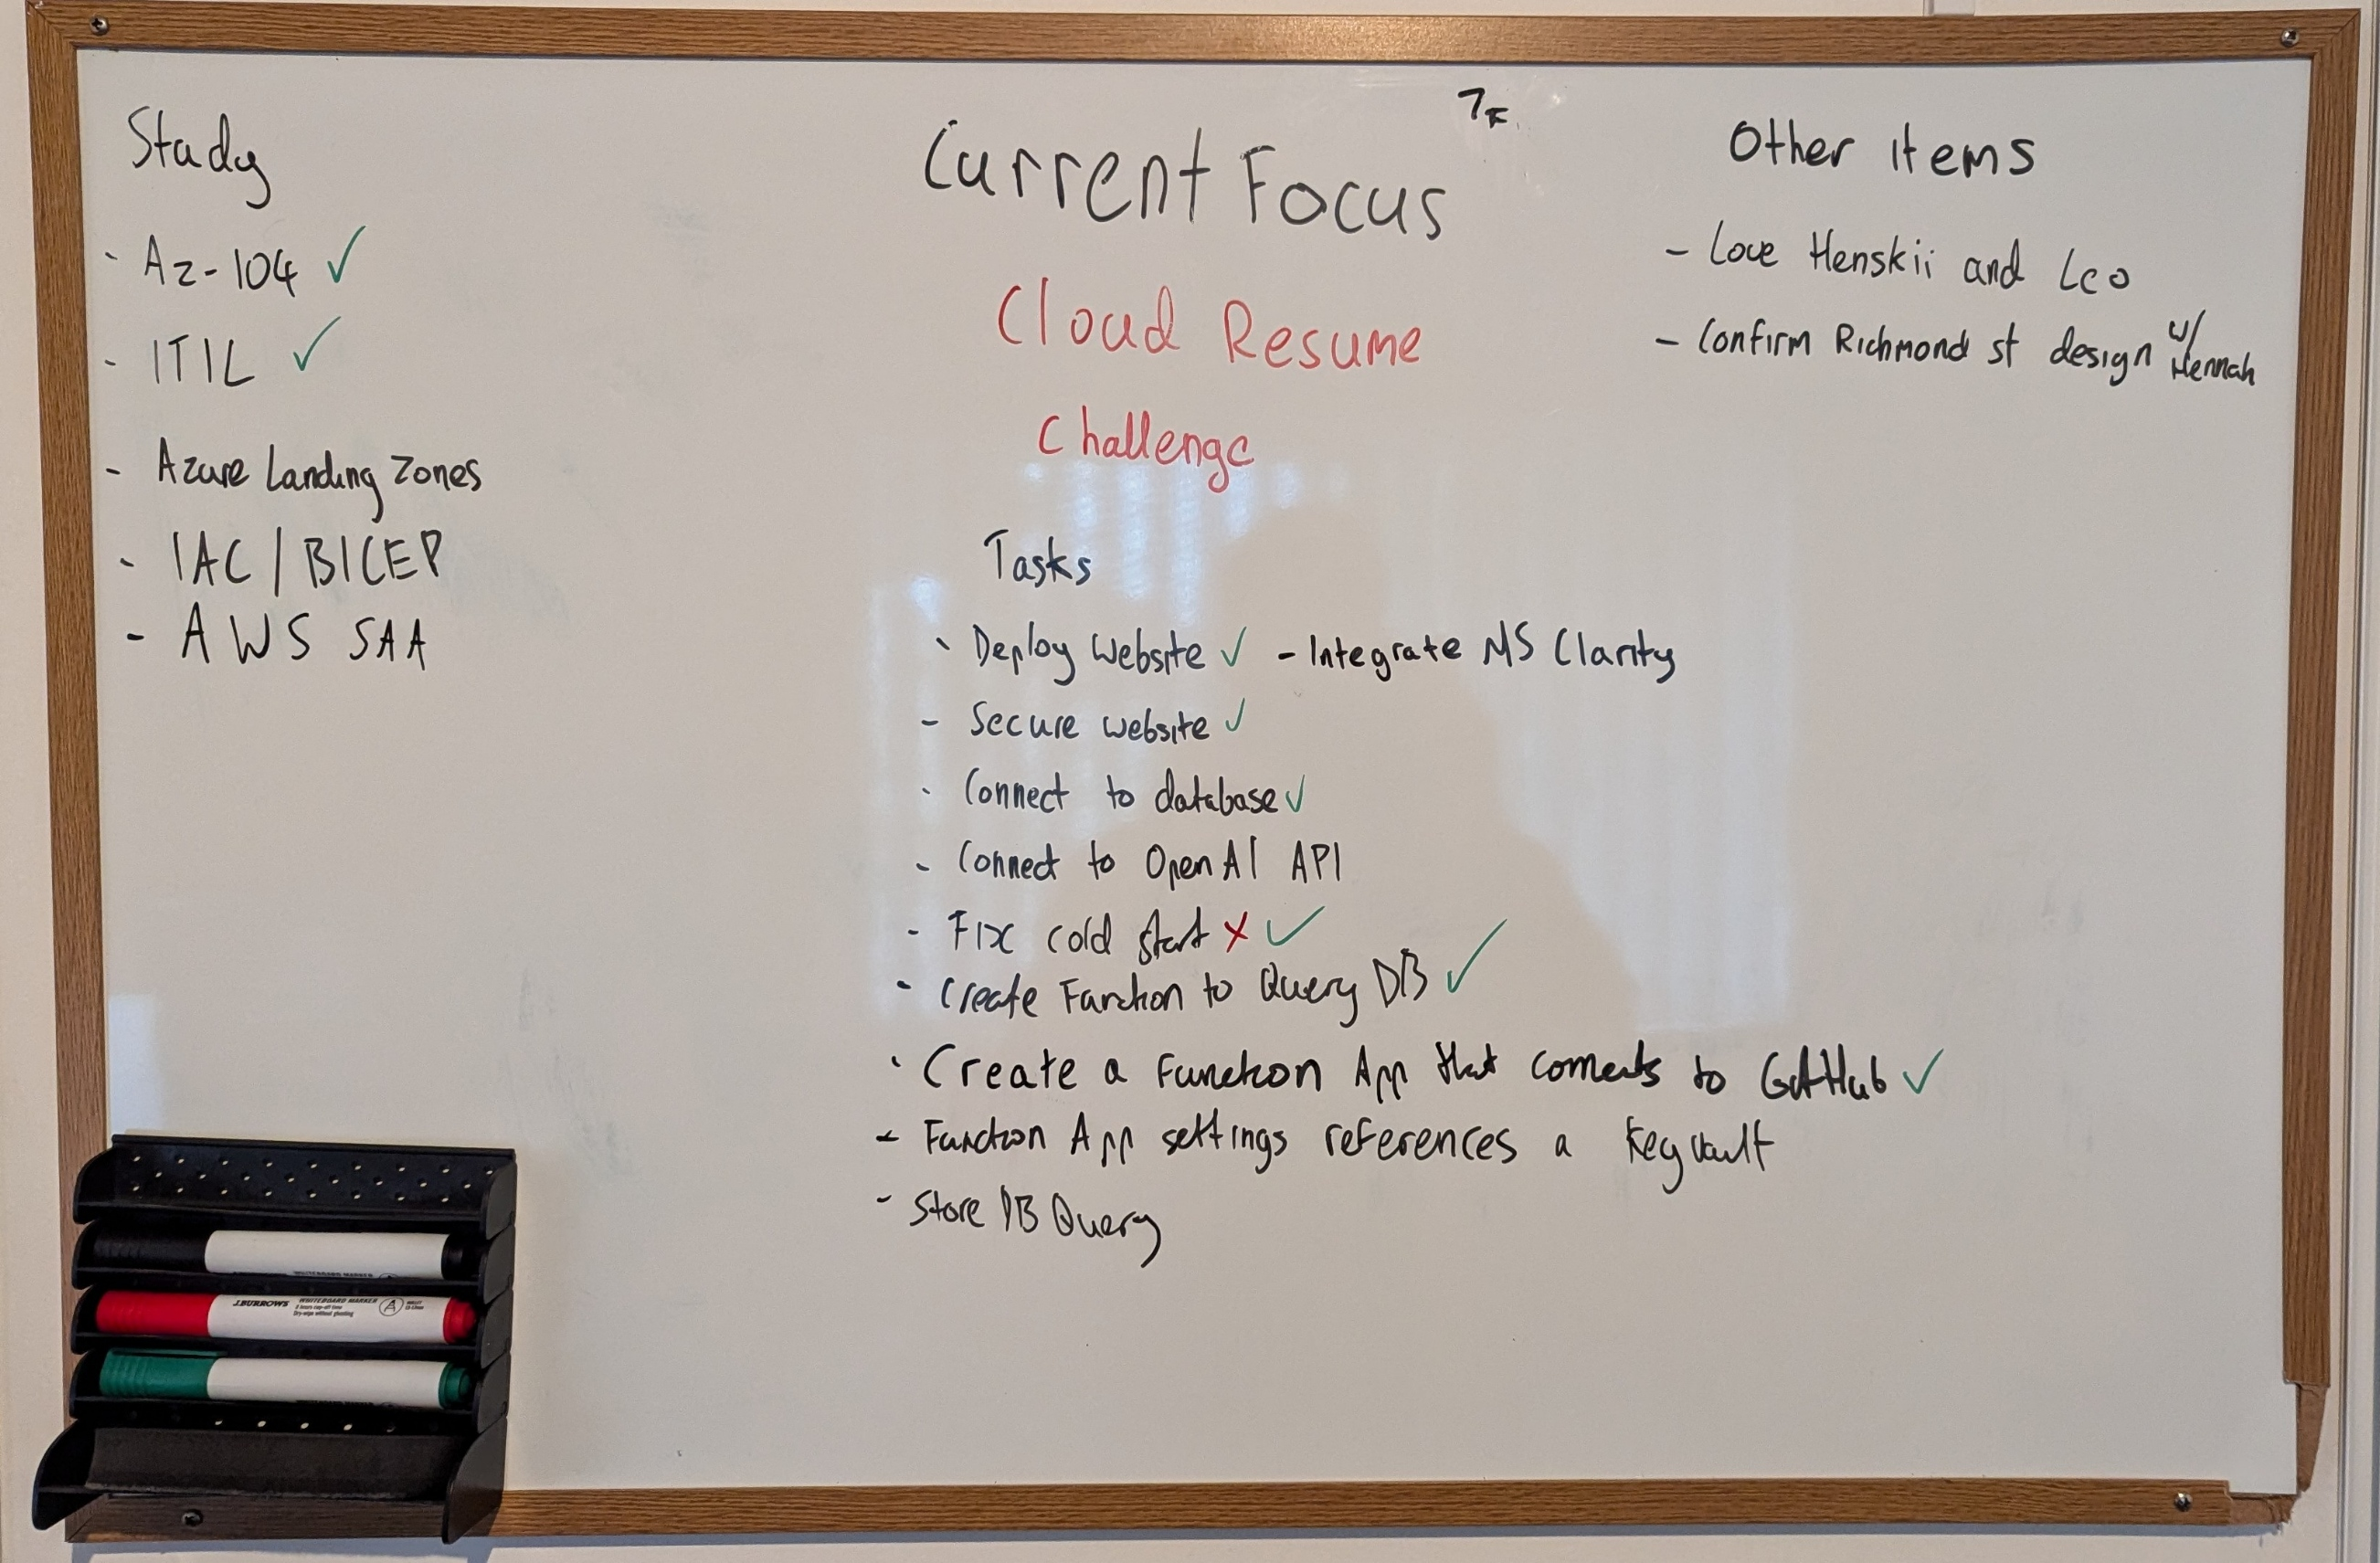 Study
- Az-104 ✓
- ITIL ✓
- Azure Landing Zones
- IAC / BICEP
- AWS SAA
Current Focus
Cloud Resume
Challenge
Tasks
- Deploy Website ✓ - Integrate MS Clarity
- Secure website ✓
- Connect to database ✓
- Connect to OpenAI API
- Fix cold start X ✓
- Create Function to Query DB ✓
- Create a Function App that to GitHub ✓
- Function App settings references a Keyvault
- Store DB Query
Other items
- Love Henskii and Leo
- Confirm Richmond st design w/ Hennah
J.BURROWS
WHITEBOARD MARKER